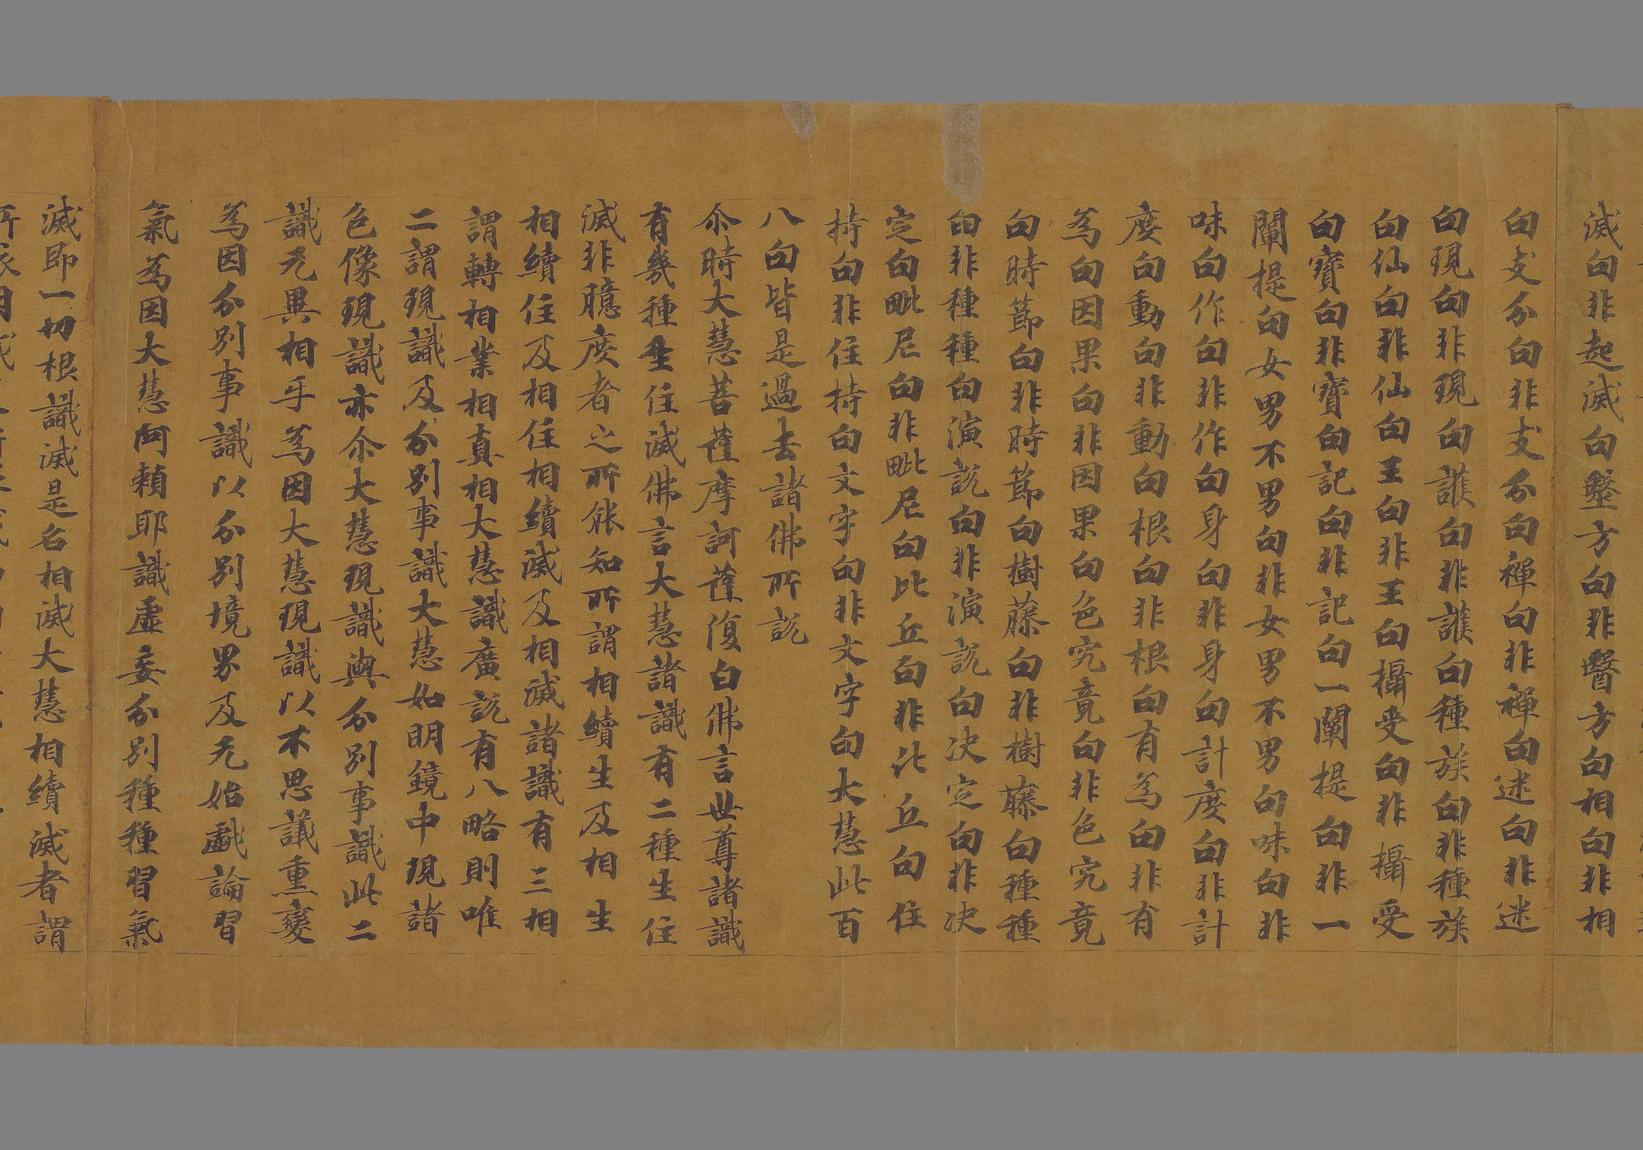 滅句非起滅句毉方句非醫方句相句非相
句支分句非支分句禪句非禪句迷句非迷
句現句非現句護句非護句種族句非種族
句仙句非仙句王句非王句攝受句非攝受
句寶句非寶句記句非記句一闡提句非一
闡提句女男不男句非女男不男句味句非
味句作句非作句身句非身句計度句非計
度句動句非動句根句非根句有為句非有
為句因果句非因果句色究竟句非色究竟
句時節句非時節句樹藤句非樹藤句種種
句非種種句演說句非演說句決定句非決
定句毗尼句非毗尼句比丘句非比丘句住
持句非住持句文字句非文字句大慧此百
八句皆是過去諸佛所說
尒時大慧菩薩摩訶薩復白佛言世尊諸識
有幾種生住滅佛言大慧諸識有二種生住
滅非臆度者之所能知所謂相續生及相生
相續住及相住相續滅及相滅諸識有三相
謂轉相業相真相大慧識廣說有八略則唯
二謂現識及分別事識大慧如明鏡中現諸
色像現識亦尒大慧現識與分別事識此二
識无異相乎為因大慧現識以不思議熏變
為因分別事識以分別境界及无始戲論習
氣為因大慧阿賴耶識虛妄分別種種習氣
滅即一切根識滅是名相滅大慧相續滅者謂